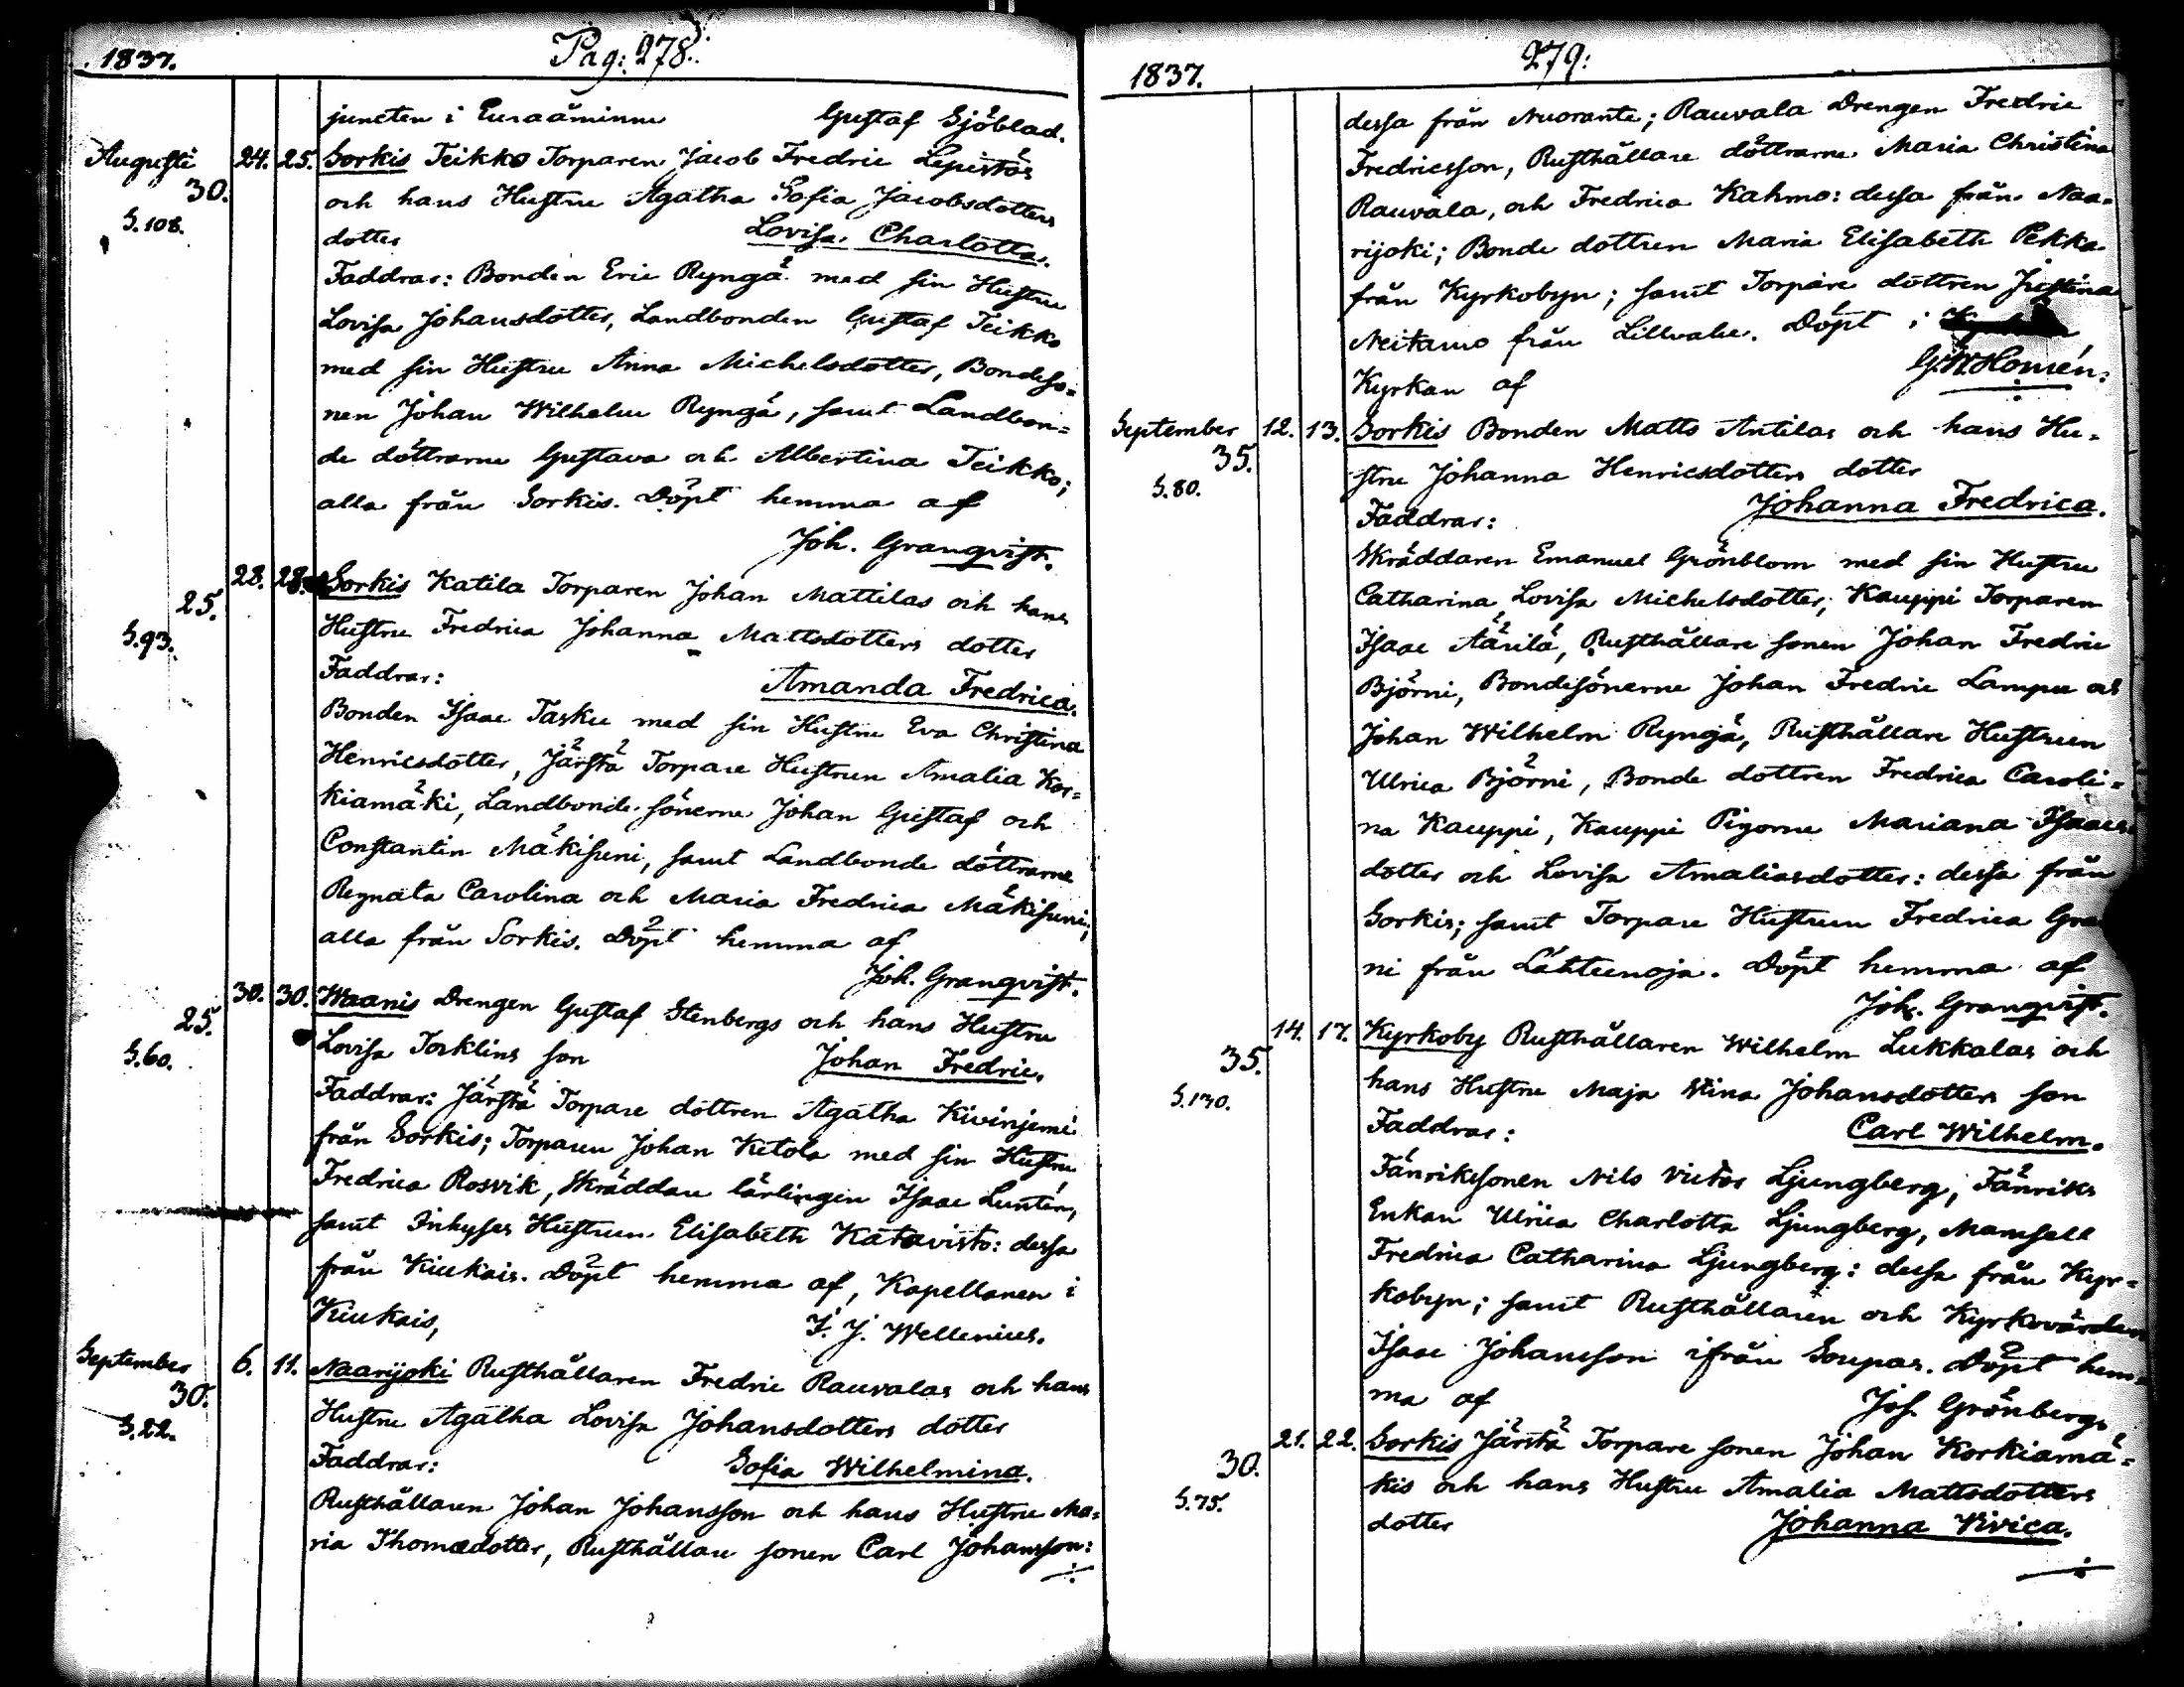 1837. Pag: 278.
juncten i Euraåminne Gustaf Sjöblad.
Augusti 24. 25. Sorkis Teikko Torparen Jacob Fredric Lepistös
30. och hans Hustru Agatha Sofia Jacobsdotters
S. 108. dotter Lovisa Charlotta.
Faddrar: Bonden Eric Ryngä med sin Hustru
Lovisa Johansdotter, Landbonden Gustaf Teikko
med sin Hustru Anna Michelsdotter, Bondeso-
nen Johan Wilhelm Ryngä, samt Landbon-
de döttrarne Gustava och Albertina Teikko;
alla från Sorkis. Döpt hemma af
Joh. Granqvist.
28. 28. Sorkis Katila Torparen Johan Mattilas och hans
25. Hustru Fredrica Johanna Mattsdotters dotter
S. 93. Faddrar: Amanda Fredrica.
Bonden Isaac Tasku med sin Hustru Eva Christina
Henricsdotter, Järstä Torpare Hustrun Amalia Kor-
kiamäki, Landbonde sönerne Johan Gustaf och
Constantin Mäkisuni, samt Landbonde döttrarne
Regnata Carolina och Maria Fredrica Mäkisuni;
alla från Sorkis. Döpt hemma af
Joh. Granqvist.
30. 30. Waanis Drengen Gustaf Stenbergs och hans Hustru
25. Lovisa Torklins son Johan Fredric.
S. 60. Faddrar: Järstä Torpare dottren Agatha Kivinjemi
från Sorkis; Torparen Johan Ketola med sin Hustru
Fredrica Rosvik, Skräddare lärlingen Isaac Luntén,
samt Inhyses Hustrun Elisabeth Katavisto: dessa
från Kiukais. Döpt hemma af, Kapellanen i
Kiukais, F. J. Wellenius.
September 6. 11. Naarijoki Rusthållaren Fredric Rauvalas och hans
30. Hustru Agatha Lovisa Johansdotters dotter
S. 22. Faddrar: Sofia Wilhelmina.
Rusthållaren Johan Johansson och hans Hustru Ma-
ria Thomædotter, Rusthållare sonen Carl Johansson:
1837. 279:
dessa från Nuoranta; Rauvala Drengen Fredric
Fredricsson, Rusthållare döttrarne Maria Christina
Rauvala, och Fredrica Kahmo: dessa från Naa-
rijoki; Bonde dottren Maria Elisabeth Pekka
från Kyrkobyn; samt Torpare dottren Justina
Neitamo från Lillvalu. Döpt i
Kyrkan af G. W. Homén.
September 12. 13. Sorkis Bonden Matts Antilas och hans Hu-
35. stru Johanna Henricsdotters dotter
S. 80. Faddrar: Johanna Fredrica.
Skräddaren Emanuel Grönblom med sin Hustru
Catharina Lovisa Michelsdotter, Kauppi Torparen
Isaac Äärilä, Rusthållare sonen Johan Fredric
Björni, Bondesönerne Johan Fredric Lampu och
Johan Wilhelm Ryngä, Rusthållare Hustrun
Ulrica Björni, Bonde dottren Fredrica Caroli-
na Kauppi, Kauppi Pigorne Mariana Isaacs
dotter och Lovisa Amaliasdotter: dessa från
Sorkis; samt Torpare Hustrun Fredrica Gra
ni från Lähteenoja. Döpt hemma af
Joh. Granqvist.
14. 17. Kyrkoby Rusthållaren Wilhelm Lukkalas och
35. hans Hustru Maja Stina Johansdotters son
S. 130. Faddrar: Carl Wilhelm.
Fänriksonen Nils Victor Ljungberg, Fänriks
Enkan Ulrica Charlotta Ljungberg, Mamsell
Fredrica Catharina Ljungberg: dessa från Kyr-
kobyn; samt Rusthållaren och Kyrkovärden
Isaac Johansson ifrån Soupas. Döpt hem-
ma af Jos. Grönberg.
21. 22. Sorkis Järstä Torpare sonen Johan Korkiamä-
30. kis och hans Hustru Amalia Mattsdotters
S. 75. dotter Johanna Vivica.